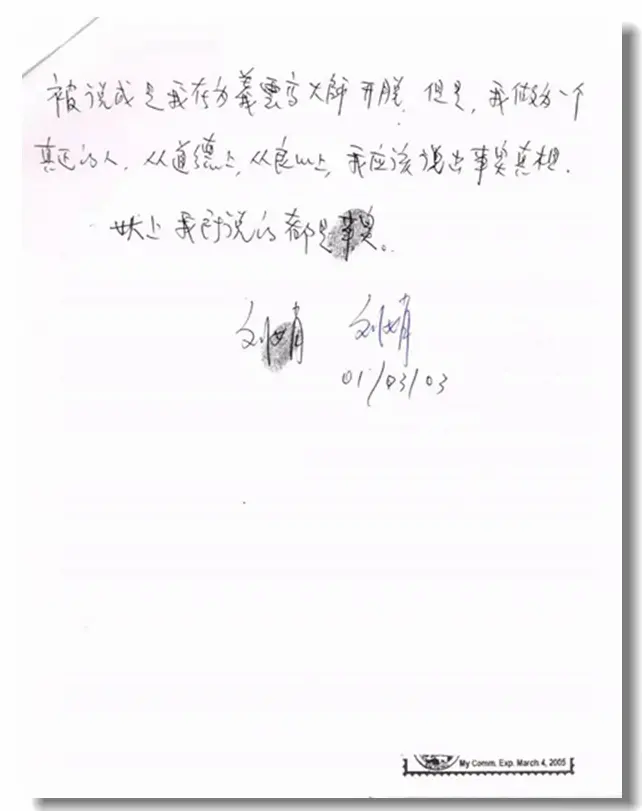 被说成是我在为義雲高大師开脱。但是,我做为一个
真正的人,从道德上,从良心上,我应该说出事实真相。
以上我所说的都是事实。
刘娟 刘娟
01/03/03
My Comm. Exp. March 4, 2005